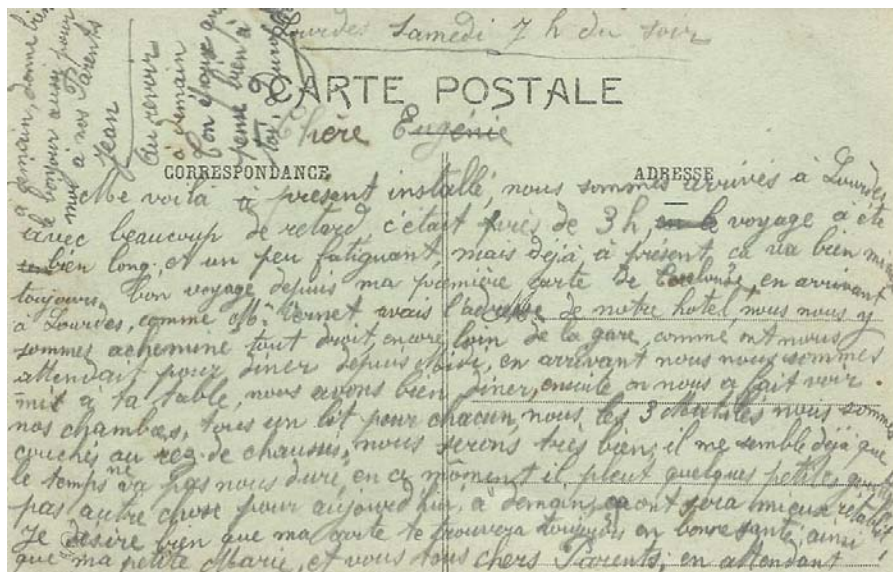 Lourdes Samedi 7 h du soir
CARTE POSTALE
Chère Eugénie
CORRESPONDANCE
ADRESSE
Me voilà à présent installé, nous sommes arrivés à Lourdes
avec beaucoup de retard, c'était près de 3 h, en le voyage à été
bien long, et un peu fatiguant, mais déjà à présent ca va bien
toujours bon voyage depuis ma première carte de Toulouse, en arrivant
à Lourdes, comme Mr Vernet avais l'adresse de notre hotel, nous nous y
sommes acheminé tout droit, encore loin de la gare, comme ont nous
attendait pour diner depuis Midi, en arrivant nous nous sommes
mit à ta table, nous avons bien diner, ensuite on nous a fait voir
nos chambres, tous un lit pour chacun, nous les 3 nous somme
couchés au rez-de chaussis, nous serons très bien, il me semble déjà que
le temps ne va pas nous duré, en ce mòment il pleut quelques petites
pas autre chose pour aujourd'hui, à demain, sera mieux rétabli
Je désire bien que ma carte te trouvera toujours en bonne santé, ainsi
que ma petite Marie, et vous tous chers Parents, en attendant
à demain, donne bien
le bonjour aussi pour
moi à nos Parents
Jean
Au revoir
à demain
ton époux qui
pense bien à
toi,